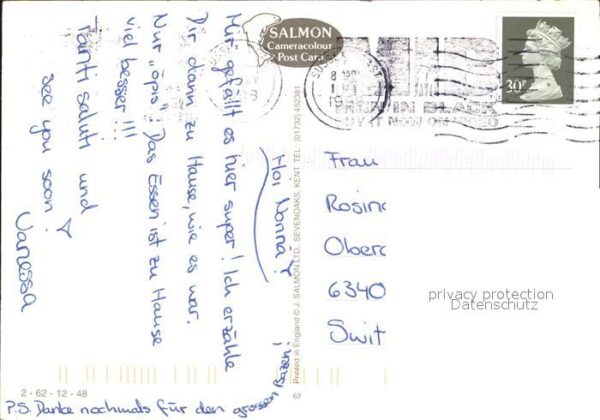 Hoi Nonna!
Mir gefällt es hier super! Ich erzähle
Dir dann zu Hause, wie es war.
Nur "öpis": Das Essen ist zu Hause
viel besser!!!
Tanti saluti und
see you soon!
Vanessa
P.S. Danke nochmals für den grossen Batzen!
SALMON
Cameracolour
Post Card
Printed in England © J. SALMON LTD., SEVENOAKS, KENT. TEL. (01732) 452381
62
2 - 62 - 12 - 48
MIB
IN BLACK
NOW ON VIDEO
30P
Frau
Rosin
Ober
6340
Swit
privacy protection
Datenschutz